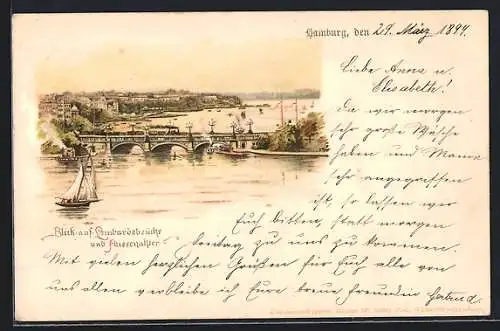 Hamburg, den 29. März 1899.
Liebe Anna u.
Elisabeth!
Da wir morgen
sehr große Wäsche
haben und Mama
sehr angegriffen
ist, so lassen wir
Euch bitten, statt morgen
Freitag zu uns zu kommen.
Mit vielen herzlichen Grüßen für Euch alle von
uns allen verbleibe ich Eure treue Freundin Gertrud.
Blick auf Lombardsbrücke
und Aussenalster